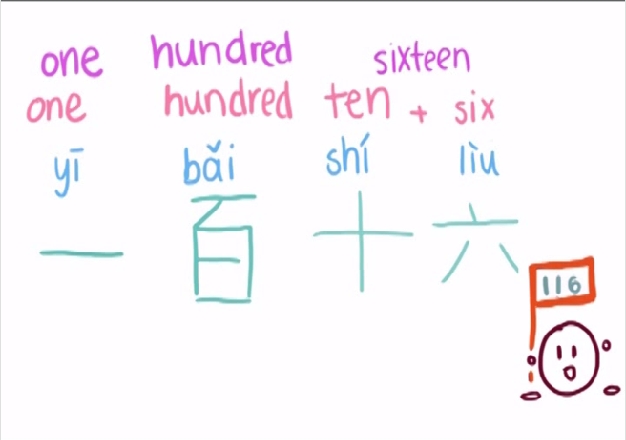 one hundred sixteen
one hundred ten + six
yī bǎi shí lìu
一 百 十 六
116